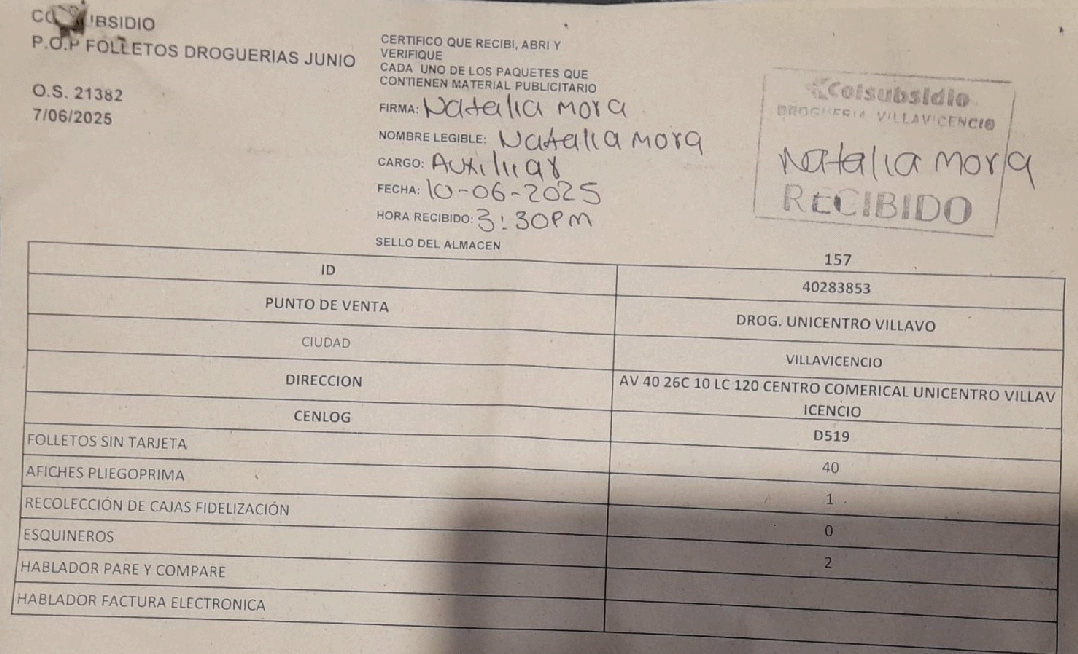 COLSUBSIDIO
P.O.P FOLLETOS DROGUERIAS JUNIO
O.S. 21382
7/06/2025
CERTIFICO QUE RECIBI, ABRI Y
VERIFIQUE
CADA UNO DE LOS PAQUETES QUE
CONTIENEN MATERIAL PUBLICITARIO
FIRMA: Natalia mora
NOMBRE LEGIBLE: Natalia mora
CARGO: Auxiliar
FECHA: 10-06-2025
HORA RECIBIDO: 3:30PM
SELLO DEL ALMACEN
Colsubsidio
DROGUERIA VILLAVICENCIO
Natalia mora
RECIBIDO
157
ID 40283853
PUNTO DE VENTA DROG. UNICENTRO VILLAVO
CIUDAD VILLAVICENCIO
DIRECCION AV 40 26C 10 LC 120 CENTRO COMERICAL UNICENTRO VILLAV
ICENCIO
CENLOG D519
FOLLETOS SIN TARJETA 40
AFICHES PLIEGOPRIMA 1
RECOLECCIÓN DE CAJAS FIDELIZACIÓN 0
ESQUINEROS 2
HABLADOR PARE Y COMPARE
HABLADOR FACTURA ELECTRONICA